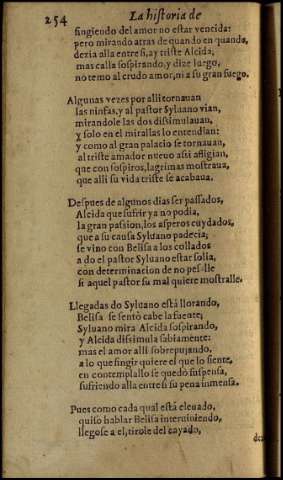 254 La historia de
fingiendo del amor no estar vencida:
pero mirando atras de quando en quando,
dezia alla entre si, ay triste Alcida,
mas calla sospirando, y dize luego,
no temo al crudo amor, ni a su gran fuego.
Algunas vezes por alli tornauan
las ninfas, y al pastor Syluano vian,
mirandole las dos dissimulauan,
y solo en el mirallas lo entendian:
y como al gran palacio se tornauan,
al triste amador nueuo assi afligian,
que con sospiros, lagrimas mostraua,
que alli su vida triste se acabaua.
Despues de algunos dias ser passados,
Alcida que sufrir ya no podia,
la gran passion, los asperos cuydados,
que a su causa Syluano padecia;
se vino con Belisa a los collados
a do el pastor Syluano estar solia,
con determinacion de no pesalle
si aquel pastor su mal quiere mostralle.
Llegadas do Syluano està llorando,
Belisa se sentò cabe la fuente;
Syluano mira Alcida sospirando,
y Alcida dissimula sabiamente:
mas el amor alli sobrepujando,
a lo que fingir quiere el que lo siente,
en contemplallo se quedò suspensa,
sufriendo alla entre si su pena inmensa.
Pues como cada qual està eleuado,
quiso hablar Belisa interuiniendo,
llegose a el, tirole del cayado,